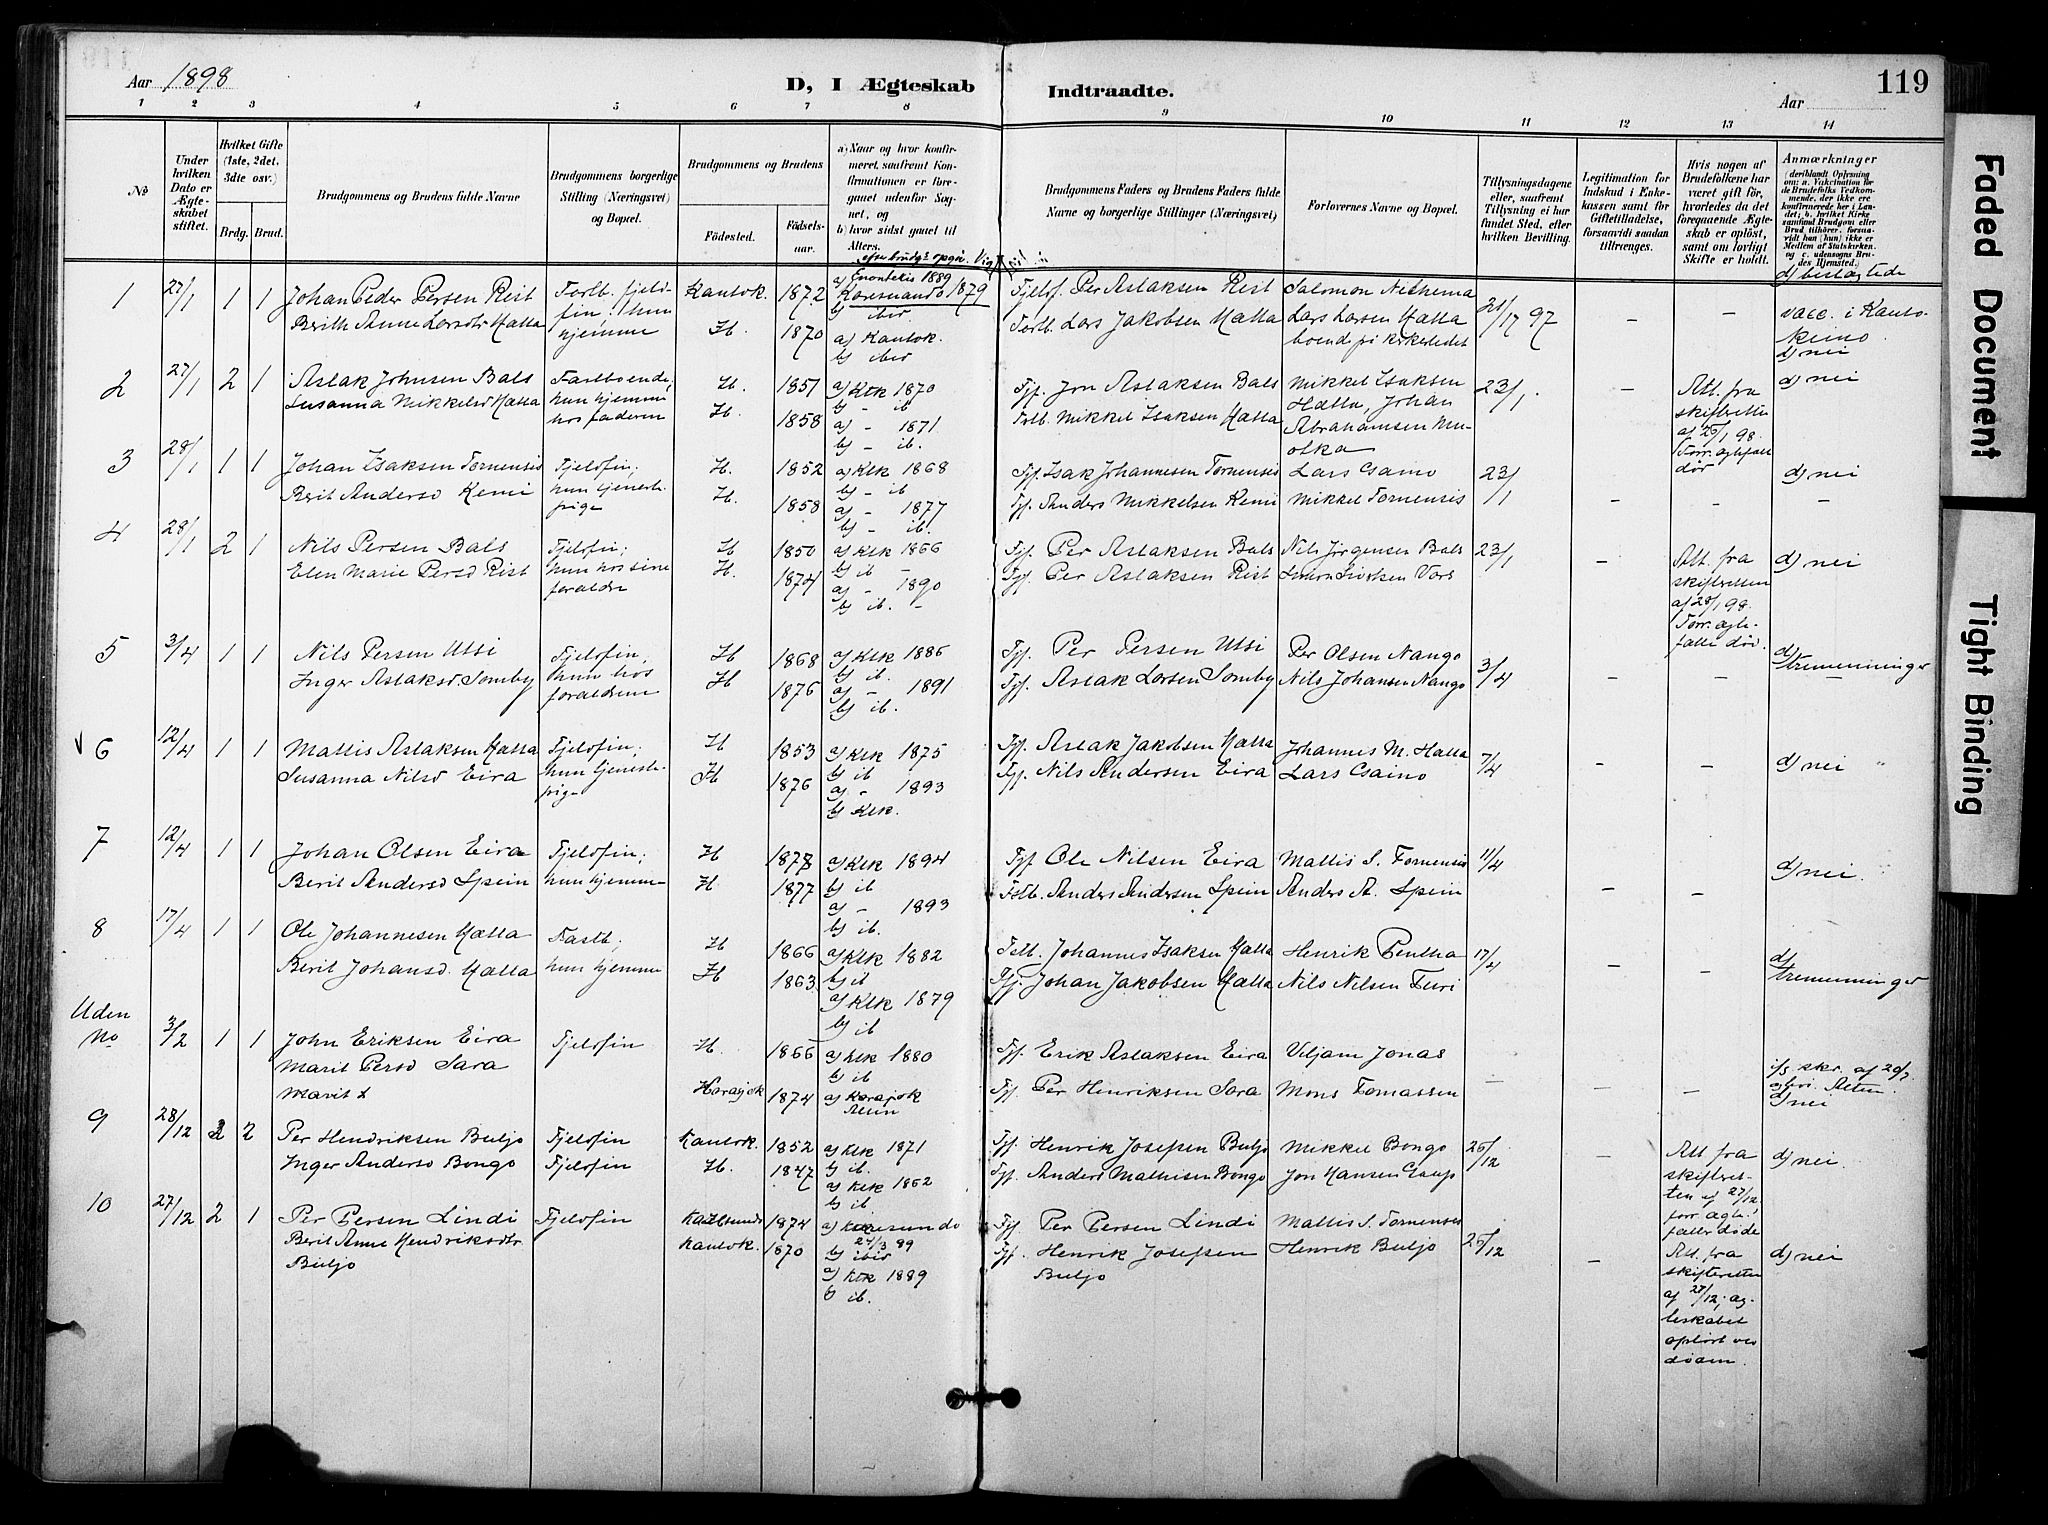 Aar 1898
D, I Ægteskab Indtraadte.
119
Aar
1 2 3 4 5 6 7 8 9 10 11 12 13 14
No
Under hvilken Dato er Ægteskabet stiftet.
Hvilket Gifte (1ste, 2det. 3dte osv.)
Brdg. Brud.
Brudgommens og Brudens fulde Navne
Brudgommens borgerlige Stilling (Næringsvei) og Bopæl.
Brudgommens og Brudens
Fødested. Fødselsaar.
a) Naar og hvor konfirmeret, saafremt Konfirmationen er foregaaet udenfor Sognet, og
b) hvor sidst gaaet til Alters.
Brudgommens Faders og Brudens Faders fulde Navne og borgerlige Stillinger (Næringsvei)
Forlovernes Navne og Bopæl.
Tillysningsdagene eller, saafremt Tillysning ei har fundet Sted, efter hvilken Bevilling.
Legitimation for Indskud i Enkekassen samt for Giftetilladelse, forsaavidt saadan tiltrænges.
Hvis nogen af Brudefolkene har været gift før, hvorledes da det foregaaende Ægteskab er opløst, samt om lovligt Skifte er holdt.
Anmærkninger (deriblandt Oplysning om: a. Vakcination for de Brudefolks Vedkommende, der ikke ere konfirmerede her i Landet; b. hvilket Kirkesamfund Brudgom eller Brud tilhører, forsaavidt han (hun) ikke er Medlem af Statskirken. og c. udensogns Brudes Hjemsted.)
d) beslægtede
1 27/1 1 1 Johan Peder Persen Rist Kautok. 1872 a) Enontekis 1889 Karesuando 1879 Fjeldf. Per Aslaksen Rist Salomon Nethema 21/17 97 – – vacc. i Kautokeino
Berith Anne Larsdtr Hætta hjemme H. 1870 a) Kautok. b) ibid Fastb. Lars Jakobsen Hætta Lars Larsen Hætta d) nei
boende på kirkestedet
2 27/1 2 1 Aslak Johnsen Bals Fastboende, H. 1851 a) Ktk 1870 Fjf. Jon Aslaksen Bals Mikkel Isaksen 23/1. – Att. fra d) nei
Susanna Mikkelsd Hætta hun hjemme hos faderen H. 1858 a) – 1871 b) – ib. Fstb. Mikkel Isaksen Hætta Hætta, Johan Abrahamsen Muotka skifteretten af 26/1 98.
3 28/1 1 1 Johan Isaksen Tornensis Fjeldfin; H. 1852 a) Ktk 1868 b) – ib Fjf. Isak Johannesen Tornensis Lars Csaino 23/1 – – d) nei
Berit Andersd Kemi hun tjenestepige H. 1858 a) – 1877 b) – ib. Fjf. Anders Mikkelsen Kemi Mikkel Tornensis
4 28/1 2 1 Nils Persen Bals Fjeldfin; H 1850 a) Ktk 1866 b) ib – Fjf. Per Aslaksen Bals Nils Jørgensen Bals 23/1 – Att. fra d) nei
Elen Marie Persd Rist hun hos sine forældre H. 1874 a) – 1890 b) ib. – Fjf. Per Aslaksen Rist skifteretten af 28/1 98. Forr. ægtefælle død.
5 3/4 1 1 Nils Persen Utsi Fjeldfin, H 1868 a) Ktk 1886 b) ib. Fjf. Per Persen Utsi Per Olsen Nango 3/4 – – d) tremenninger
Inger Aslaksd. Somby hun hos forældrene H 1876 a) – 1891 b) ib. Fjf. Aslak Larsen Somby Nils Johansen Nango
6 12/4 1 1 Mattis Aslaksen Hætta Fjeldfin; H 1853 a) Ktk 1875 b) ib Fjf. Aslak Jakobsen Hætta Johannes M. Hætta 7/4 – – d) nei
Susanna Nilsd Eira hun tjenestepige H 1876 a) – 1893 b) Ktk. Fjf. Nils Andersen Eira Lars Csaino
7 12/4 1 1 Johan Olsen Eira Fjeldfin; H 1877 a) Ktk 1894 b) ib Fjf. Ole Nilsen Eira Mattis S. Tornensis 11/4 – – d) nei.
Berit Andersd Spein hun hjemme H 1877 a) – 1893 b) ib. Fstb. Anders Andersen Spein Anders A. Spein
8 17/4 1 1 Ole Johannesen Hætta Fastb; H 1866 a) Ktk 1882 b) ib Fstb. Johannes Isaksen Hætta Henrik Pentha 17/4 – – d) tremenninger
Berit Johansd. Hætta hun hjemme H 1863 a) Ktk 1879 b) ib Fjf. Johan Jakobsen Hætta Nils Nilsen Turi
Uden No 3/2 1 1 John Eriksen Eira Fjeldfin H. 1866 a) Ktk 1880 b) ib Fjf. Erik Aslaksen Eira Viljam Jonas – – –
Marit Persd Sara Karasjok 1874 a) Karasjok Fjf. Per Henriksen Sara Mons Tomassen d) nei
9 28/12 2 2 Per Hendriksen Buljo Fjeldfin Kautok. 1852 a) Ktk 1871 b) ib. Fjf. Henrik Josefsen Buljo Mikkel Bongo 26/12 – Att. fra d) nei.
Inger Andersd Bongo Fjeldfin H. 1847 a) Ktk 1862 b) ib. Fjf. Anders Mathisen Bongo Jon Hansen Gaup skifteretten af 27/12, forr. ægtefæller døde
10 27/12 2 1 Per Persen Lindi Fjeldfin 1874 a) Karesuando 24/3 89 b) ibid Fjf. Per Persen Lindi Mattis S. Tornensis 26/12 – Att. fra d) nei
Berit Anne Hendriksdtr Buljo Kautok. 1870 a) Ktk 1889 b) ib. Fjf. Henrik Josefsen Buljo Henrik Buljo skifteretten af 27/12; ægteskabet opløst ved døden.
Faded Document
Tight Binding